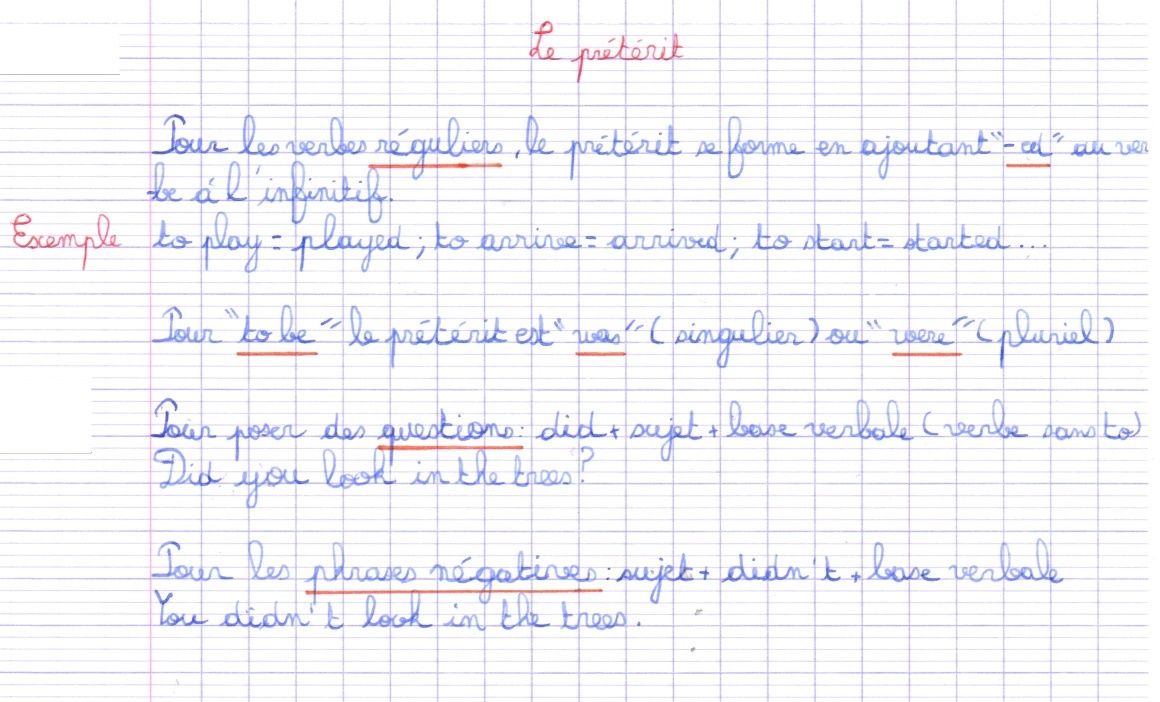 Le prétérit
Pour les verbes réguliers, le prétérit se forme en ajoutant "-ed" au ver
be à l'infinitif.
Exemple to play = played ; to arrive = arrived ; to start = started ...
Pour "to be" le prétérit est "was" (singulier) ou "were" (pluriel)
Pour poser des questions : did + sujet + base verbale (verbe sans to)
Did you look in the trees?
Pour les phrases négatives : sujet + didn't + base verbale
You didn't look in the trees.